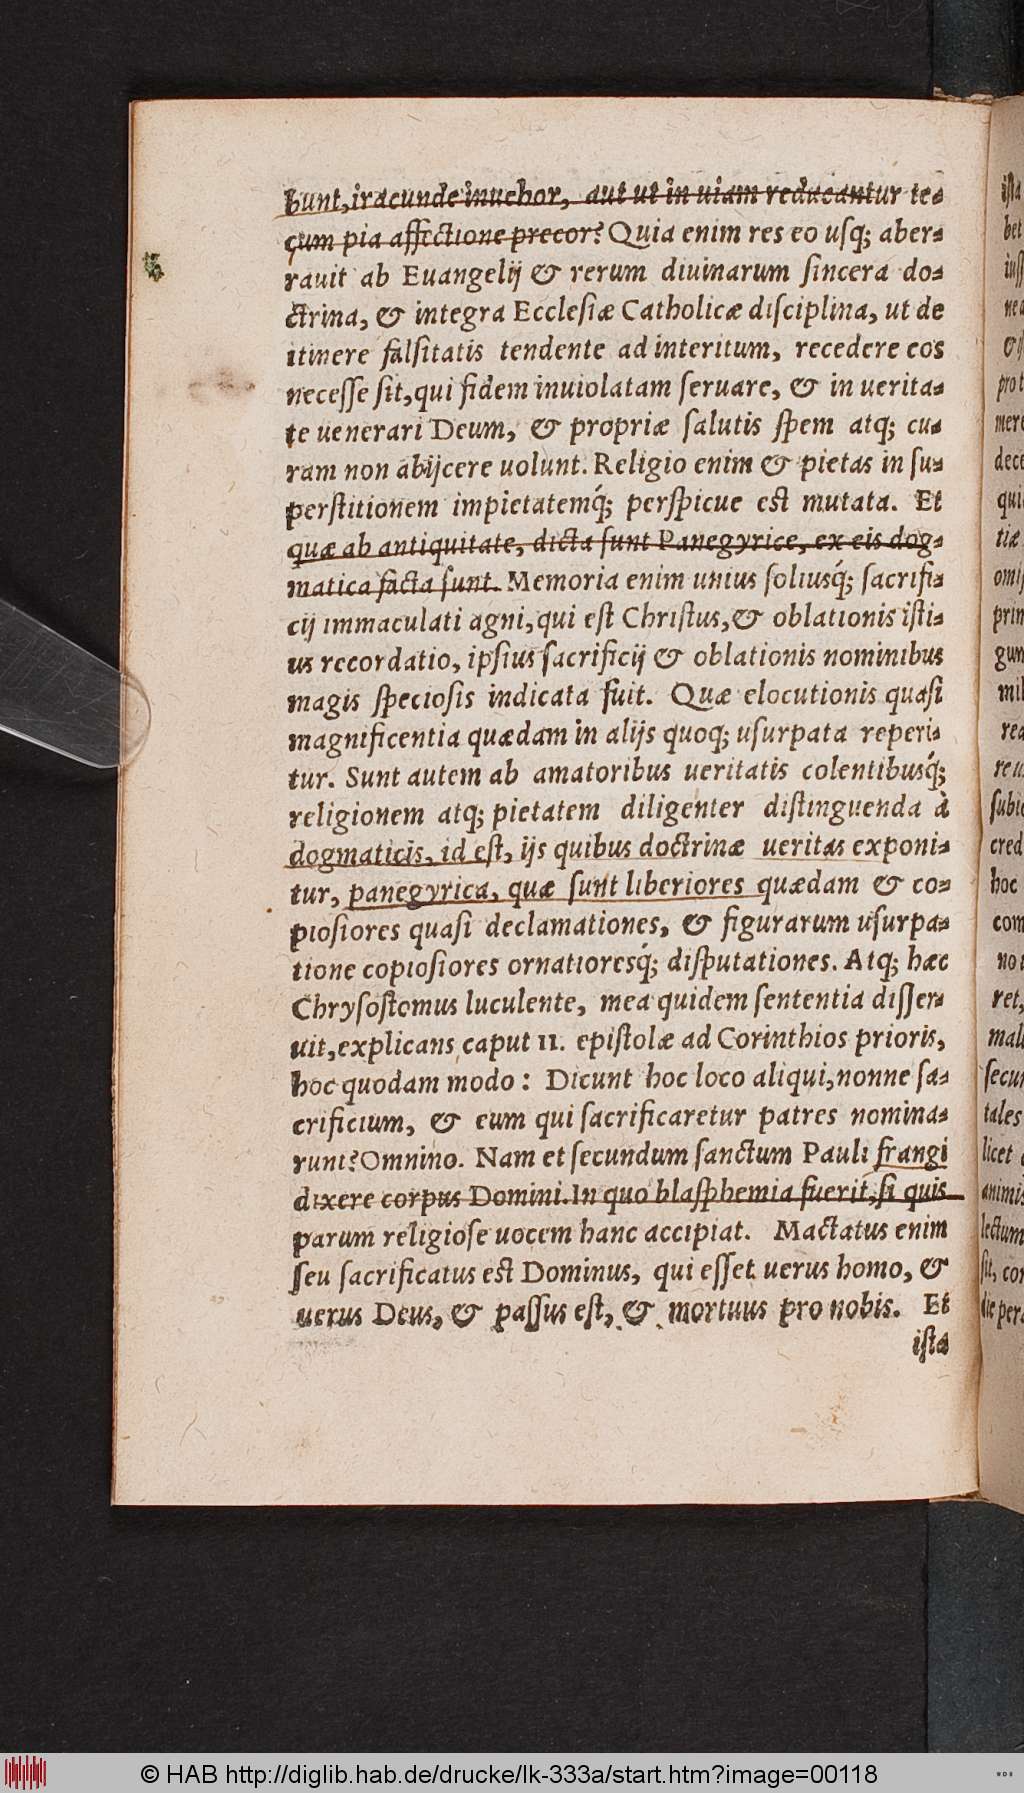 bunt, iracunde inuehor, aut ut in uiam reducantur te⸗
cum pia affectione precor? Quia enim res eo usq; aber⸗
rauit ab Euangelij & rerum diuinarum sincera do⸗
ctrina, & integra Ecclesiæ Catholicæ disciplina, ut de
itinere falsitatis tendente ad interitum, recedere eos
necesse sit, qui fidem inuiolatam seruare, & in uerita⸗
te uenerari Deum, & propriæ salutis spem atq; cu⸗
ram non abijcere uolunt. Religio enim & pietas in su⸗
perstitionem impietatemq́; perspicue est mutata. Et
quæ ab antiquitate, dicta sunt Panegyrice, ex eis dog⸗
matica facta sunt. Memoria enim unius soliusq́; sacrifi⸗
cij immaculati agni, qui est Christus, & oblationis isti⸗
us recordatio, ipsius sacrificij & oblationis nominibus
magis speciosis indicata fuit. Quæ elocutionis quasi
magnificentia quædam in alijs quoq; usurpata reperi⸗
tur. Sunt autem ab amatoribus ueritatis colentibusq́;
religionem atq; pietatem diligenter distinguenda à
dogmaticis, id est, ijs quibus doctrinæ ueritas exponi⸗
tur, panegyrica, quæ sunt liberiores quædam & co⸗
piosiores quasi declamationes, & figurarum usurpa⸗
tione copiosiores ornatioresq́; disputationes. Atq; hæc
Chrysostomus luculente, mea quidem sententia disser⸗
uit, explicans caput 11. epistolæ ad Corinthios prioris,
hoc quodam modo: Dicunt hoc loco aliqui, nonne sa⸗
crificium, & eum qui sacrificaretur patres nomina⸗
runt? Omnino. Nam et secundum sanctum Pauli frangi
dixere corpus Domini. In quo blasphemia fuerit, si quis
parum religiose uocem hanc accipiat. Mactatus enim
seu sacrificatus est Dominus, qui esset uerus homo, &
uerus Deus, & passus est, & mortuus pro nobis. Et
ista
© HAB http://diglib.hab.de/drucke/lk-333a/start.htm?image=00118